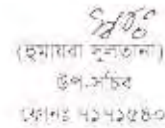 (হুমায়রা সুলতানা)
উপ-সচিব
ফোনঃ ৭১৭১৫৪০